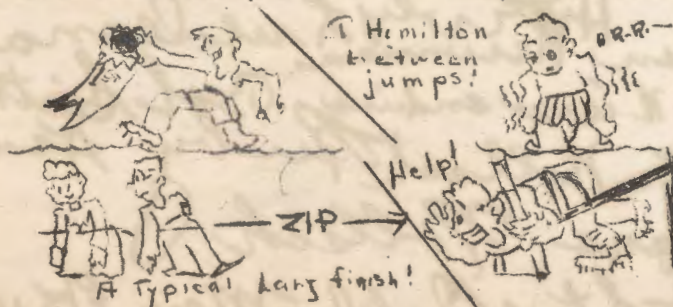 T Hamilton
between
jumps!
BR-R.—
Help!
— ZIP →
A Typical Lang finish!